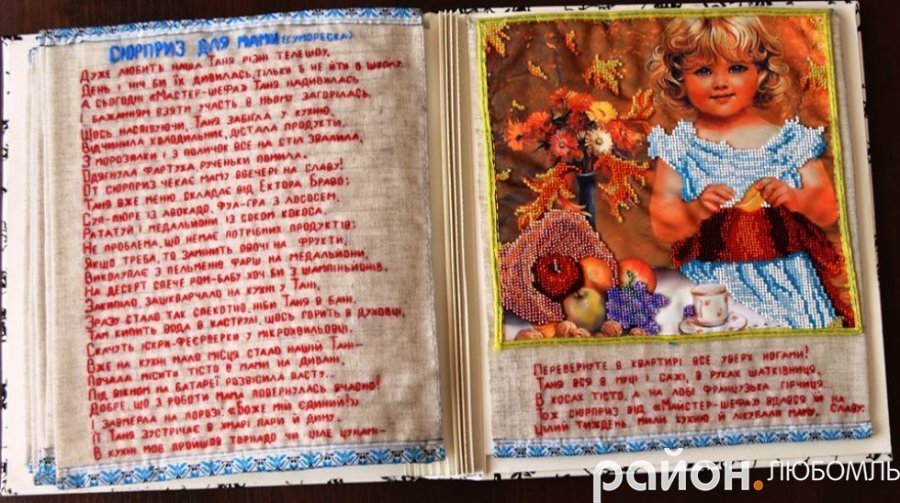 СЮРПРИЗ ДЛЯ МАМИ (ГУМОРЕСКА)
ДУЖЕ ЛЮБИТЬ НАША ТАНЯ РІЗНІ ТЕЛЕШОУ,
ДЕНЬ І НІЧ БИ ЇХ ДИВИЛАСЬ, ТІЛЬКИ Б НЕ ЙТИ В ШКОЛУ.
А СЬОГОДНІ «МАСТЕР-ШЕФА» ТАНЯ НАДИВИЛАСЬ
І БАЖАННЯМ ВЗЯТИ УЧАСТЬ В НЬОМУ ЗАГОРІЛАСЬ.
ЩОСЬ НАСПІВУЮЧИ, ТАНЯ ЗАБІГЛА У КУХНЮ,
ВІДЧИНИЛА ХОЛОДИЛЬНИК, ДІСТАЛА ПРОДУКТИ.
З МОРОЗИЛКИ І З ПОЛИЧОК ВСЕ НА СТІЛ ЗВАЛИЛА,
ОДЯГНУЛА ФАРТУХА, РУЧЕНЬКИ ПОМИЛА.
ОТ СЮРПРИЗ ЧЕКАЄ МАМУ ВВЕЧЕРІ НА СЛАВУ!
ТАНЯ ВЖЕ МЕНЮ СКЛАДАЄ ВІД ЕКТОРА БРАВО:
СУП-ПЮРЕ ІЗ АВОКАДО, ФУА-ГРА З ЛОСОСЕМ,
РАТАТУЙ І МЕДАЛЬЙОНИ ІЗ СОКОМ КОКОСА.
НЕ ПРОБЛЕМА, ЩО НЕМАЄ ПОТРІБНИХ ПРОДУКТІВ:
ЯКЩО ТРЕБА, ТО ЗАМІНИТЬ ОВОЧІ НА ФРУКТИ,
ВИКОЛУПАЄ З ПЕЛЬМЕНІВ ФАРШ НА МЕДАЛЬЙОНИ,
НА ДЕСЕРТ СПЕЧЕ РОМ-БАБУ ХОЧ БИ З ШАМПІНЬЙОНІВ.
ЗАКИПІЛО, ЗАШКВАРЧАЛО НА КУХНІ У ТАНІ,
ЗРАЗУ СТАЛО ТАК СПЕКОТНО, НІБИ ТАНЯ В БАНІ.
ТАМ КИПИТЬ ВОДА В КАСТРУЛІ, ЩОСЬ ГОРИТЬ В ДУХОВЦІ,
СКАЧУТЬ ІСКРИ-ФЕЄРВЕРКИ У МІКРОХВИЛЬОВЦІ.
ВЖЕ НА КУХНІ МАЛО МІСЦЯ СТАЛО НАШІЙ ТАНІ-
ПОЧАЛА МІСИТИ ТІСТО В МАМИ НА ДИВАНІ,
ПІД ВІКНОМ НА БАТАРЕЇ РОЗВІСИЛА ПАСТУ...
ДОБРЕ, ЩО З РОБОТИ МАМА ПОВЕРНУЛАСЬ ВЧАСНО!
І ЗАВМЕРЛА НА ПОРОЗІ: «БОЖЕ МІЙ ЄДИНИЙ!»
ЇЇ ТАНЯ ЗУСТРІЧАЄ В ХМАРІ ПАРИ Й ДИМУ.
В КУХНІ МОВ ПРОЙШОВ ТОРНАДО ЧИ ЦІЛЕ ЦУНАМІ-
ПЕРЕВЕРНУТЕ В КВАРТИРІ ВСЕ УВЕРХ НОГАМИ!
ТАНЯ ВСЯ В МУЦІ І САЖІ, В РУКАХ ШАТКІВНИЦЯ,
В КОСАХ ТІСТО, А НА ЛОБІ ФРАНЦУЗЬКА ГІРЧИЦЯ...
ТОЖ СЮРПРИЗ ВІД «МАЙСТЕР-ШЕФА» ВДАВСЯ ЇЙ НА СЛАВУ:
ЦІЛИЙ ТИЖДЕНЬ МИЛИ КУХНЮ Й ЛІКУВАЛИ МАМУ.
район.ЛЮБОМЛЬ